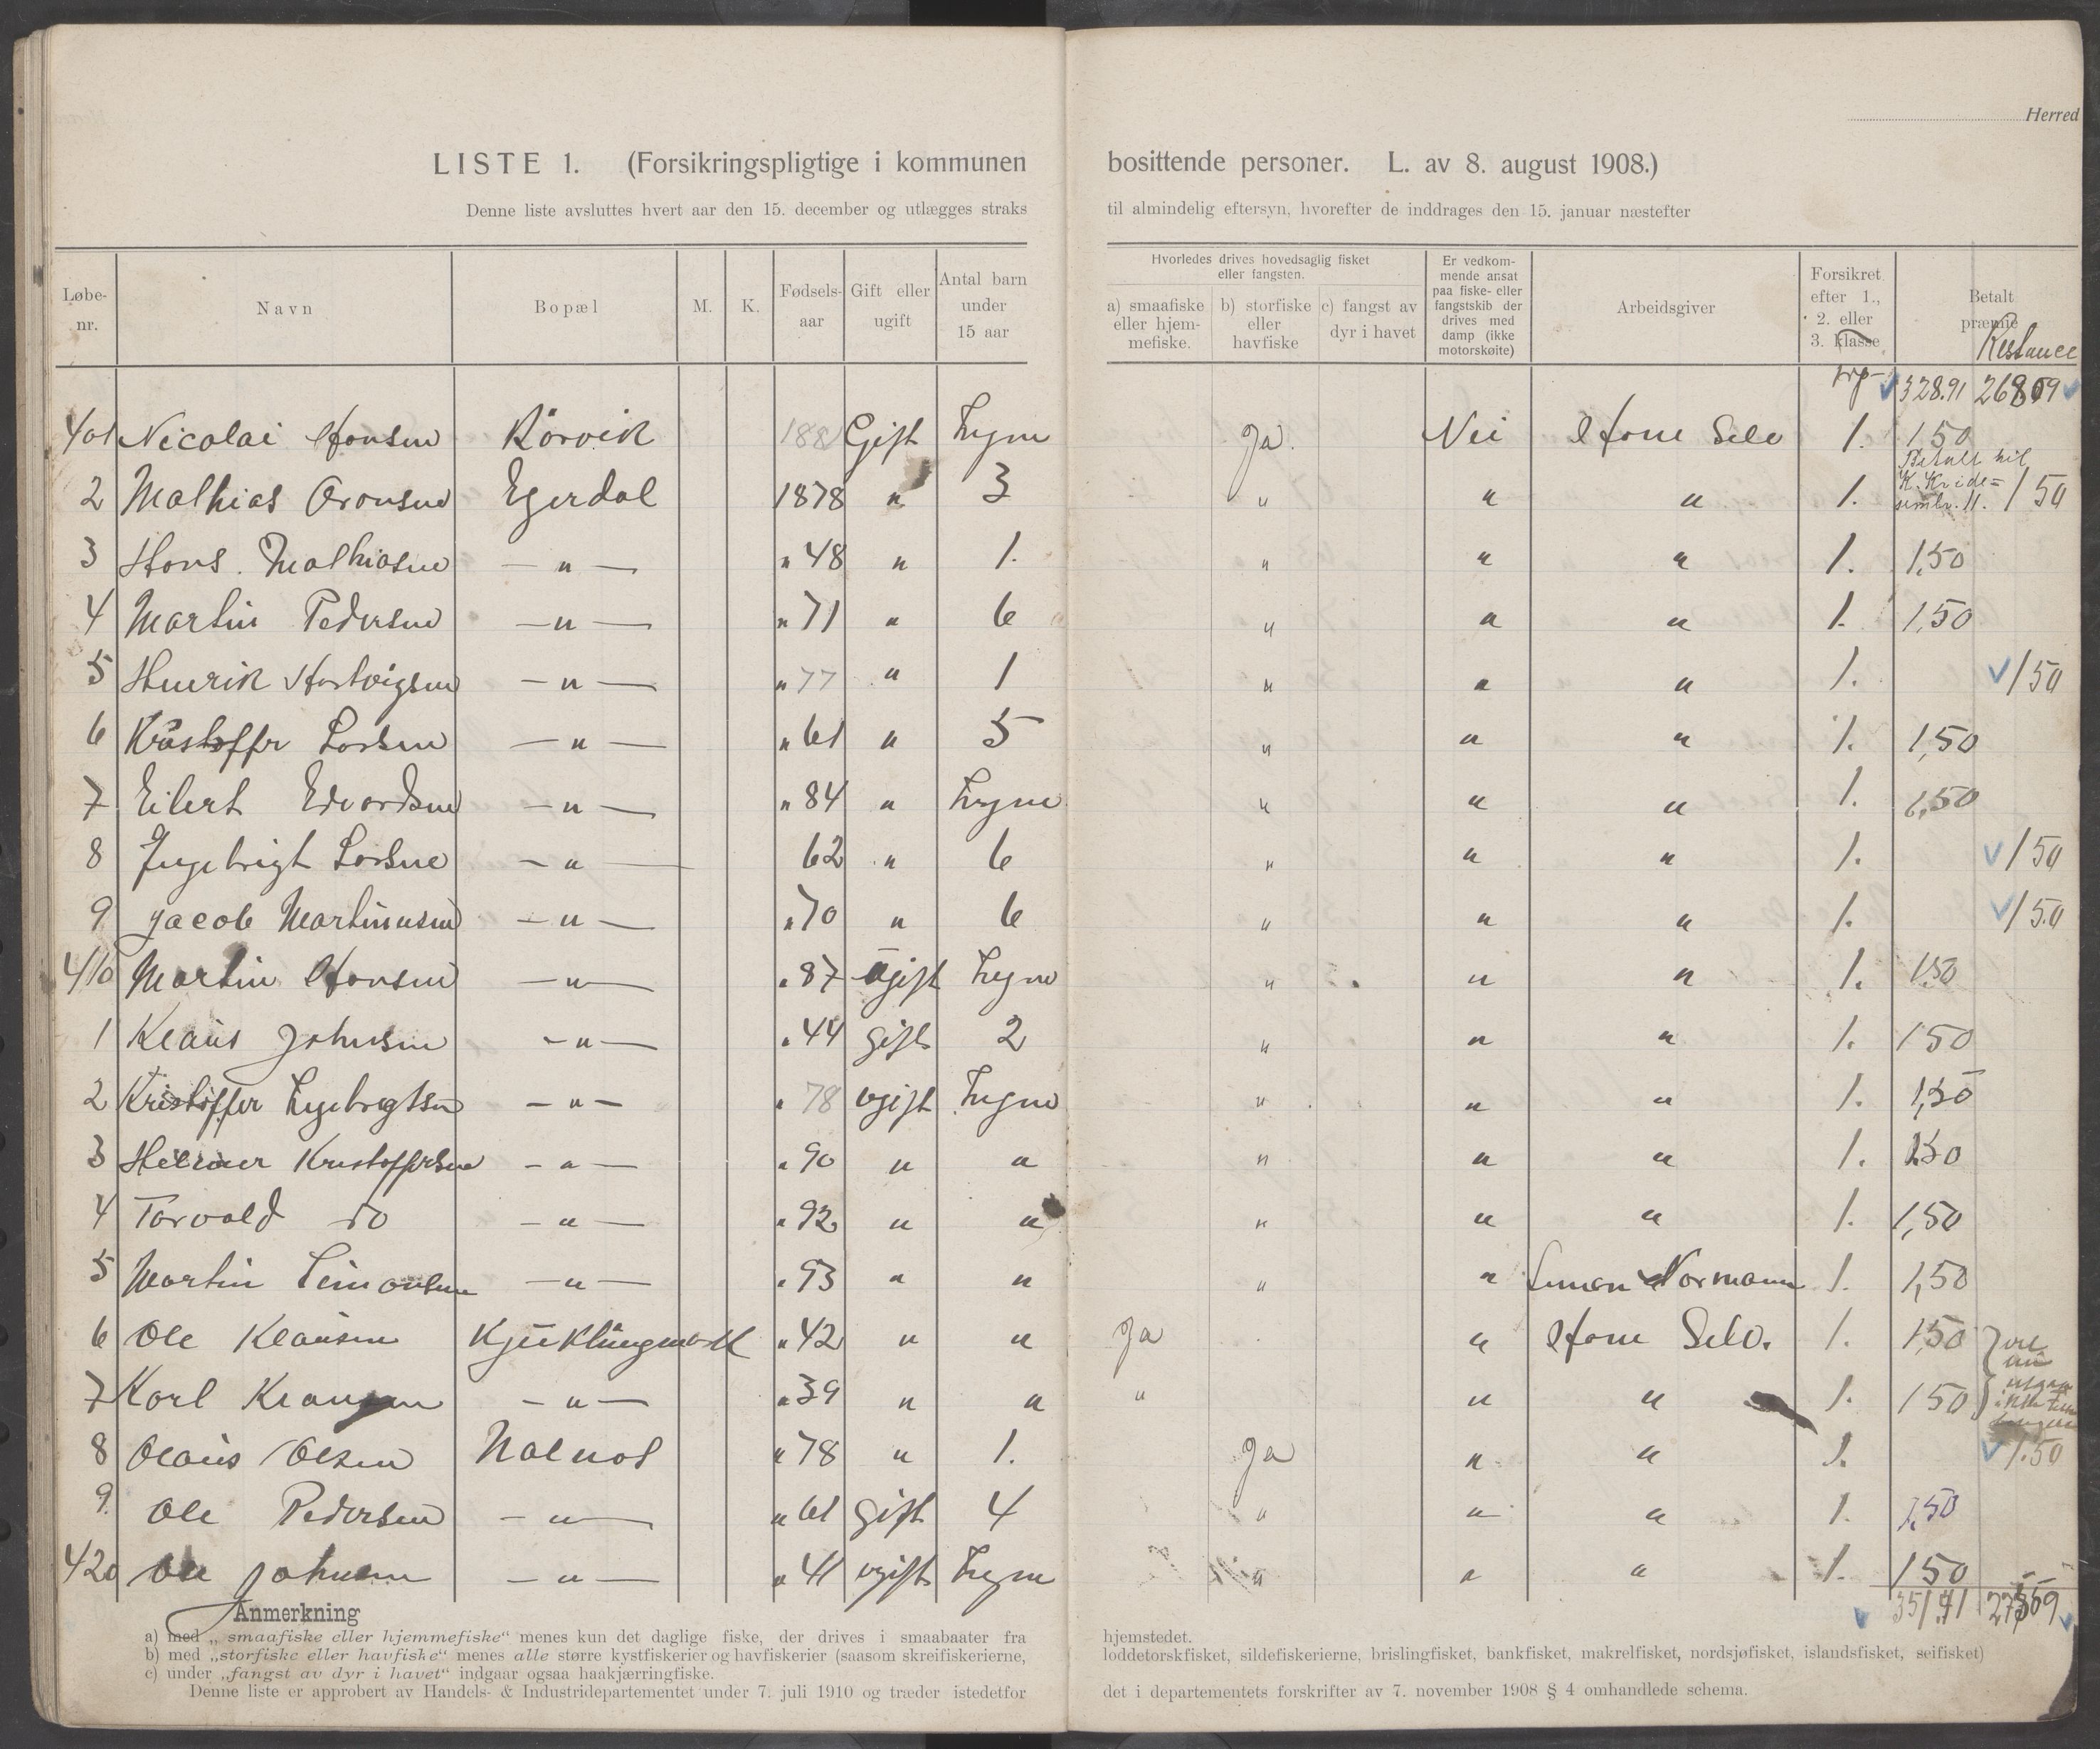 Herred
LISTE 1. (Forsikringspligtige i kommunen bosittende personer. L. av 8. august 1908.)
Denne liste avsluttes hvert aar den 15. december og utlægges straks til almindelig eftersyn, hvorefter de inddrages den 15. januar næstefter
Løbe-nr. Navn Bopæl M. K. Fødsels-aar Gift eller ugift Antal barn under 15 aar Hvorledes drives hovedsaglig fisket eller fangsten. a) smaafiske eller hjem-mefiske. b) storfiske eller havfiske c) fangst av dyr i havet Er vedkom-mende ansat paa fiske- eller fangstskib der drives med damp (ikke motorskøite) Arbeidsgiver Forsikret efter 1., 2. eller 3. klasse Betalt præmie Restance
328.91 268 09
401 Nicolai Hansen Rörvik 188 Gift Ingen Ja. Nei Hans Selv 1. 1 50
2 Mathias Aronsen Egerdal 1878 " 3 " " " 1. Betalt til K. Kr 11. 1 50
3 Hans. Mathiasen — " — " 48 " 1. " " " 1. 1,50
4 Martin Pedersen — " — " 71 " 6 " " " 1. 1,50
5 Henrik Hartvigsen — " — " 77 " 1 " " " 1. 1 50
6 Kristoffer Larsen — " — " 61 " 5 " " " 1. 1,50
7 Eilert Edvardsen — " — " 84 " Ingen " " " 1. 1,50
8 Ingebrigt Larsen — " — 62 " 6 " " " 1. 1 50
9 Jacob Martinusen — " — " 70 " 6 " " " 1. 1 50
410 Martin Hansen — " — " 87 ugift Ingen " " " 1. 1.50
1 Klaus Johnsen — " — " 44 gift 2 " " " 1. 1 50
2 Kristoffer Ingebrigtsen — " — " 78 ugift Ingen " " " 1. 1,50
3 Hilmer Kristoffersen — " — " 90 " " " " " 1. 1.50
4 Torvald do — " — " 92 " " " " " 1. 1,50
5 Martin Simonsen — " — " 93 " " " " Simon Normann 1. 1,50
6 Ole Klausen " 42 " " Ja " Hans Selv. 1. 1,50
7 Karl Klausen — " — " 39 " " " " " 1. 1 50
8 Olaus Olsen " 78 " 1. Ja " " 1. 1.50
9. Ole Pedersen — " — " 61 gift 4 " " " 1. 1,50
420 Ole Johnsen — " — " 41 ugift Ingen " " " 1. 1 50
351.41
Anmerkning
a) med „smaafiske eller hjemmefiske“ menes kun det daglige fiske, der drives i smaabaater fra hjemstedet.
b) med „storfiske eller havfiske“ menes alle større kystfiskerier og havfiskerier (saasom skreifiskerierne, loddetorskfisket, sildefiskerierne, brislingfisket, bankfisket, makrelfisket, nordsjøfisket, islandsfisket, seifisket)
c) under „fangst av dyr i havet“ indgaar ogsaa haakjærringfiske.
Denne liste er approbert av Handels- & Industridepartementet under 7. juli 1910 og træder istedetfor det i departementets forskrifter av 7. november 1908 § 4 omhandlede schema.